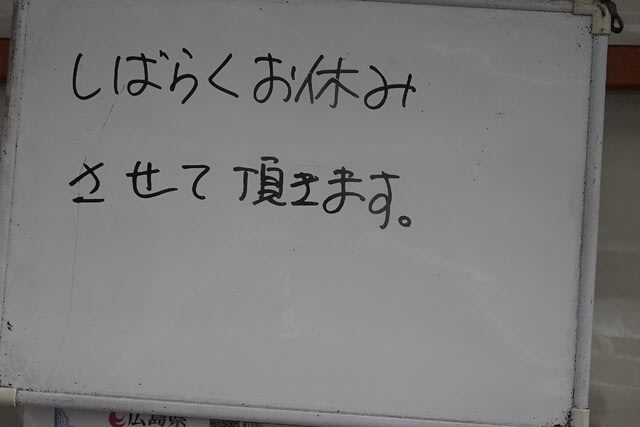 しばらくお休み
させて頂きます。
広島県